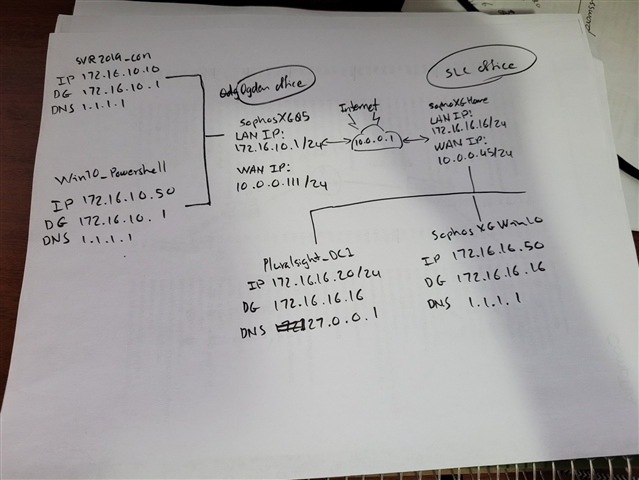 SVR2019_con
IP 172.16.10.10
DG 172.16.10.1
DNS 1.1.1.1
Win10_Powershell
IP 172.16.10.50
DG 172.16.10.1
DNS 1.1.1.1
Ogden office
sophosXG85
LAN IP:
172.16.10.1/24
WAN IP:
10.0.0.111/24
Internet
10.0.0.1
SLC office
sophosXGHome
LAN IP:
172.16.16.16/24
WAN IP:
10.0.0.45/24
Pluralsight_DC1
IP 172.16.16.20/24
DG 172.16.16.16
DNS 127.0.0.1
SophosXGWin10
IP 172.16.16.50
DG 172.16.16.16
DNS 1.1.1.1